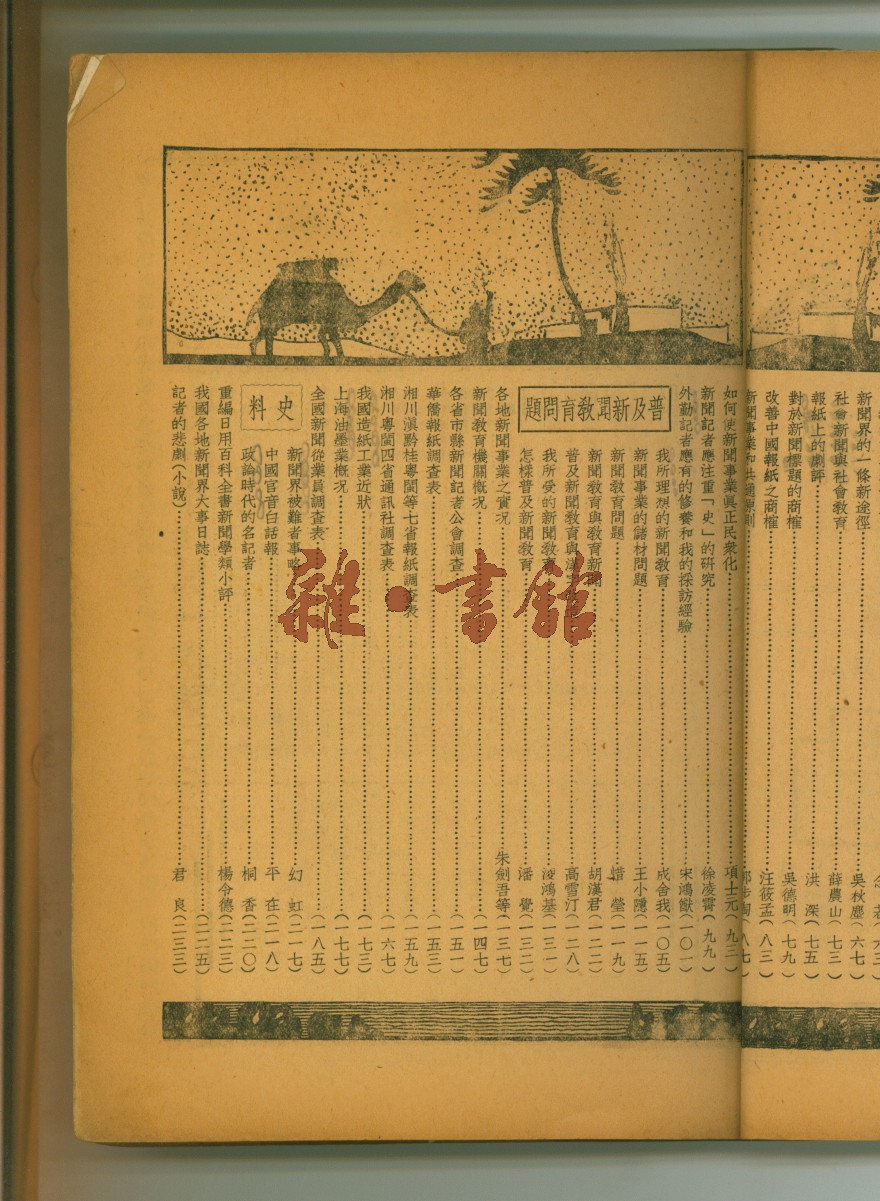 新聞界的一條新途徑⋯⋯吳秋塵(六七)
社會新聞與社會教育⋯⋯薛農山(七三)
報紙上的劇評⋯⋯洪 深(七五)
對於新聞標題的商榷⋯⋯吳德明(七九)
改善中國報紙之商榷⋯⋯汪筱孟(八三)
新聞事業和共通原則⋯⋯(八七)
如何使新聞事業眞正民衆化⋯⋯項士元(九三)
新聞記者應注重「史」的研究⋯⋯徐凌霄(九九)
外勤記者應有的修養和我的採訪經驗⋯⋯宋鴻猷(一〇一)
普及新聞敎育問題
我所理想的新聞敎育⋯⋯成舍我(一〇五)
新聞事業的儲材問題⋯⋯王小隱(一一五)
新聞敎育問題⋯⋯惜 瑩(一一九)
新聞敎育與敎育新聞⋯⋯胡漢君(一二二)
普及新聞敎育與⋯⋯高雪汀(一二八)
我所愛的新聞敎育⋯⋯凌鴻基(一三一)
怎樣普及新聞敎育⋯⋯潘 覺(一三二)
各地新聞事業之實況⋯⋯朱劍吾等(一三七)
新聞敎育機關槪況⋯⋯(一四七)
各省市縣新聞記者公會調查⋯⋯(一五一)
華僑報紙調查表⋯⋯(一五三)
湘川滇黔桂粵閩等七省報紙調查表⋯⋯(一五九)
湘川粵閩四省通訊社調查表⋯⋯(一六七)
我國造紙工業近狀⋯⋯(一七三)
上海油墨業槪况⋯⋯(一七七)
全國新聞從業員調查表⋯⋯(一八五)
史料
新聞界被難者事略⋯⋯幻 虹(二一七)
中國官音白話報⋯⋯平 在(二一八)
政論時代的名記者⋯⋯桐 香(二二〇)
重編日用百科全書新聞學類小評⋯⋯楊令德(二二三)
我國各地新聞界大事日誌⋯⋯(二二五)
記者的悲劇(小說)⋯⋯君 良(二三三)
雜·書館